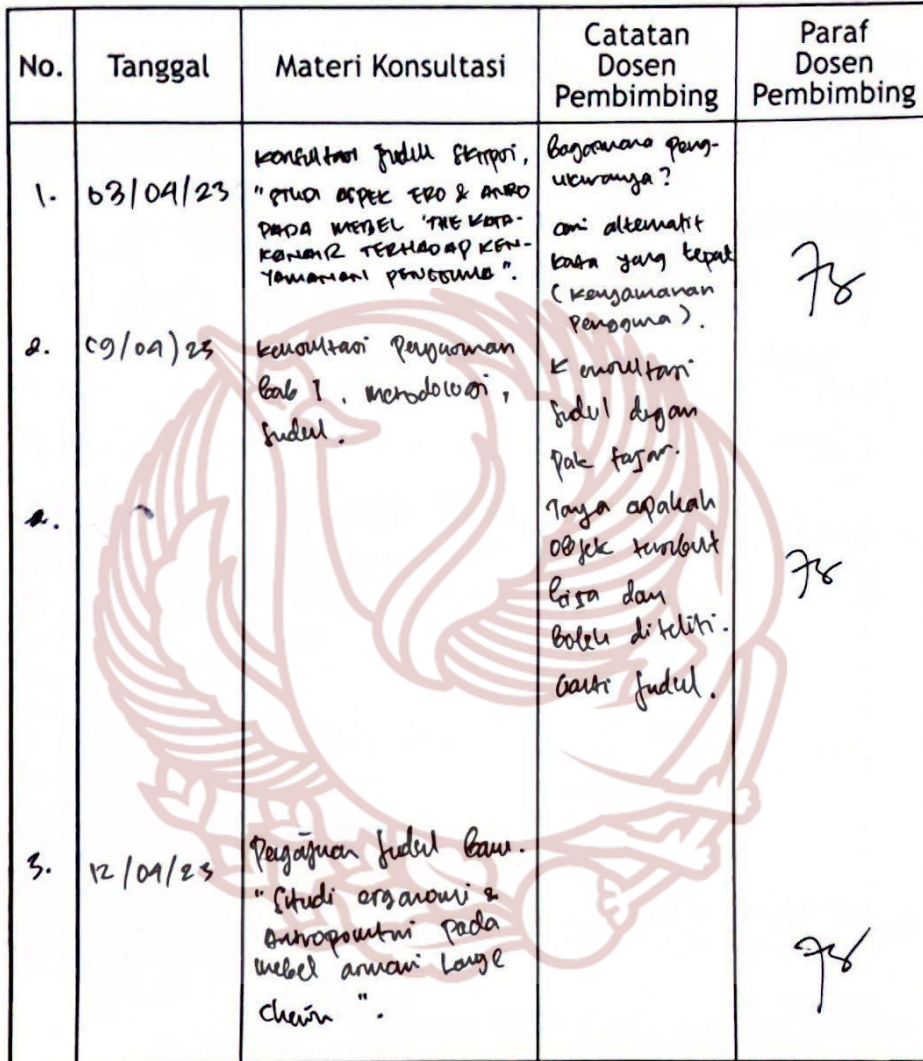 No.
Tanggal
Materi Konsultasi
Catatan
Dosen
Pembimbing
Paraf
Dosen
Pembimbing
1.
03/04/23
Konsultasi judul skripsi,
"STUDI ASPEK ERO & ANRO
PADA MEBEL 'THE
TERHADAP KEN-
YAMANAN PENGGUNA".
Bagaimana peng-
ukurannya?
cari alternatif
kata yang tepat
(Kenyamanan
Pengguna).
2.
09/04/23
Konsultasi
bab I, metodologi,
judul.
Konsultasi
judul dengan
pak fajar.
Tanya apakah
objek tersebut
bisa dan
boleh diteliti.
Ganti judul.
3.
12/04/23
Pengajuan judul baru.
"Studi ergonomi &
Antropometri pada
mebel armani Lounge
Chair".